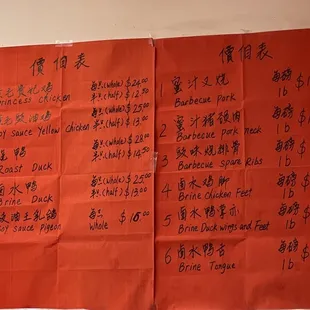 價自表
每只(whole) $24.00
Princess Chicken 半只(half) $12.50
每只(whole) $25.00
Soy Sauce Yellow Chicken 半只(half) $13.00
鴨 每只(whole) $28.00
Roast Duck 半只(half) $14.50
鹵水鴨 每只(whole) $25.00
Brine Duck 半只(half) $13.00
豉油王乳鴿 每只 $16.00
Soy sauce pigeon whole
價自表
1 蜜汁叉烧 每磅 $
Barbecue Pork 1b
2 蜜汁豬頸肉 每磅 $
Barbecue Pork neck 1b
3 豉味燒排骨 每磅 $
Barbecue Spare Ribs 1b
4 鹵水鸡脚 每磅 $
Brine Chicken Feet 1b
5 鹵水鴨掌亦 每磅 $
Brine Duck wings and Feet 1b
6 鹵水鴨舌 每磅 $
Brine Tongue 1b